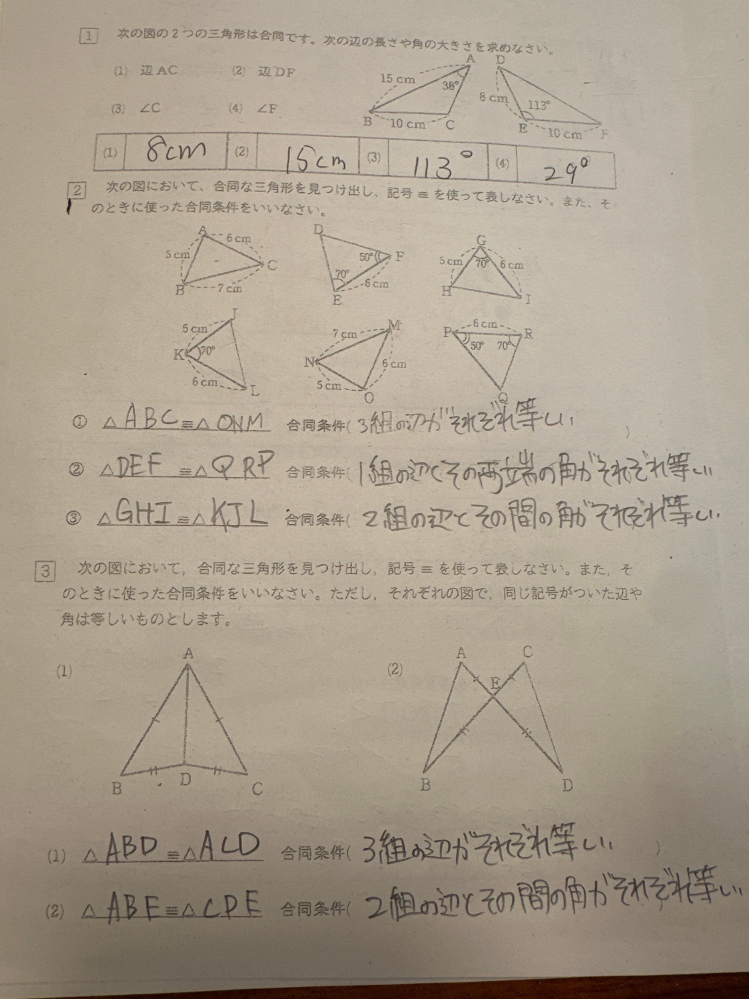 1 次の図の2つの三角形は合同です。次の辺の長さや角の大きさを求めなさい。
(1) 辺AC (2) 辺DF
(3) ∠C (4) ∠F
A
15cm
38°
B
10cm
C
D
8cm
113°
E
10cm
F
(1) 8cm (2) 15cm (3) 113° (4) 29°
2 次の図において、合同な三角形を見つけ出し、記号≡を使って表しなさい。また、そ
のときに使った合同条件をいいなさい。
A
6cm
5cm
C
B
7cm
D
50°
F
70°
6cm
E
G
5cm
70°
6cm
H
I
J
5cm
K
70°
6cm
L
M
7cm
N
6cm
5cm
O
6cm
P
R
50°
70°
Q
① △ABC≡△ONM 合同条件(3組の辺がそれぞれ等しい)
② △DEF≡△QRP 合同条件(1組の辺とその両端の角がそれぞれ等しい
③ △GHI≡△KJL 合同条件(2組の辺とその間の角がそれぞれ等しい
3 次の図において,合同な三角形を見つけ出し,記号≡を使って表しなさい。また,そ
のときに使った合同条件をいいなさい。ただし,それぞれの図で,同じ記号がついた辺や
角は等しいものとします。
(1)
A
B
D
C
(2)
A
C
E
B
D
(1) △ABD≡△ACD 合同条件(3組の辺がそれぞれ等しい)
(2) △ABE≡△CDE 合同条件(2組の辺とその間の角がそれぞれ等しい